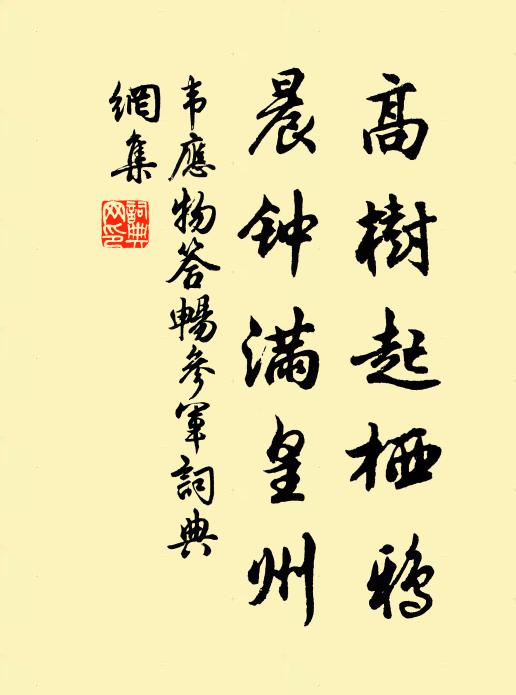 高樹起栖鴉
晨钟满皇州
韦應物答暢參軍詞典
網集
詞典
网印